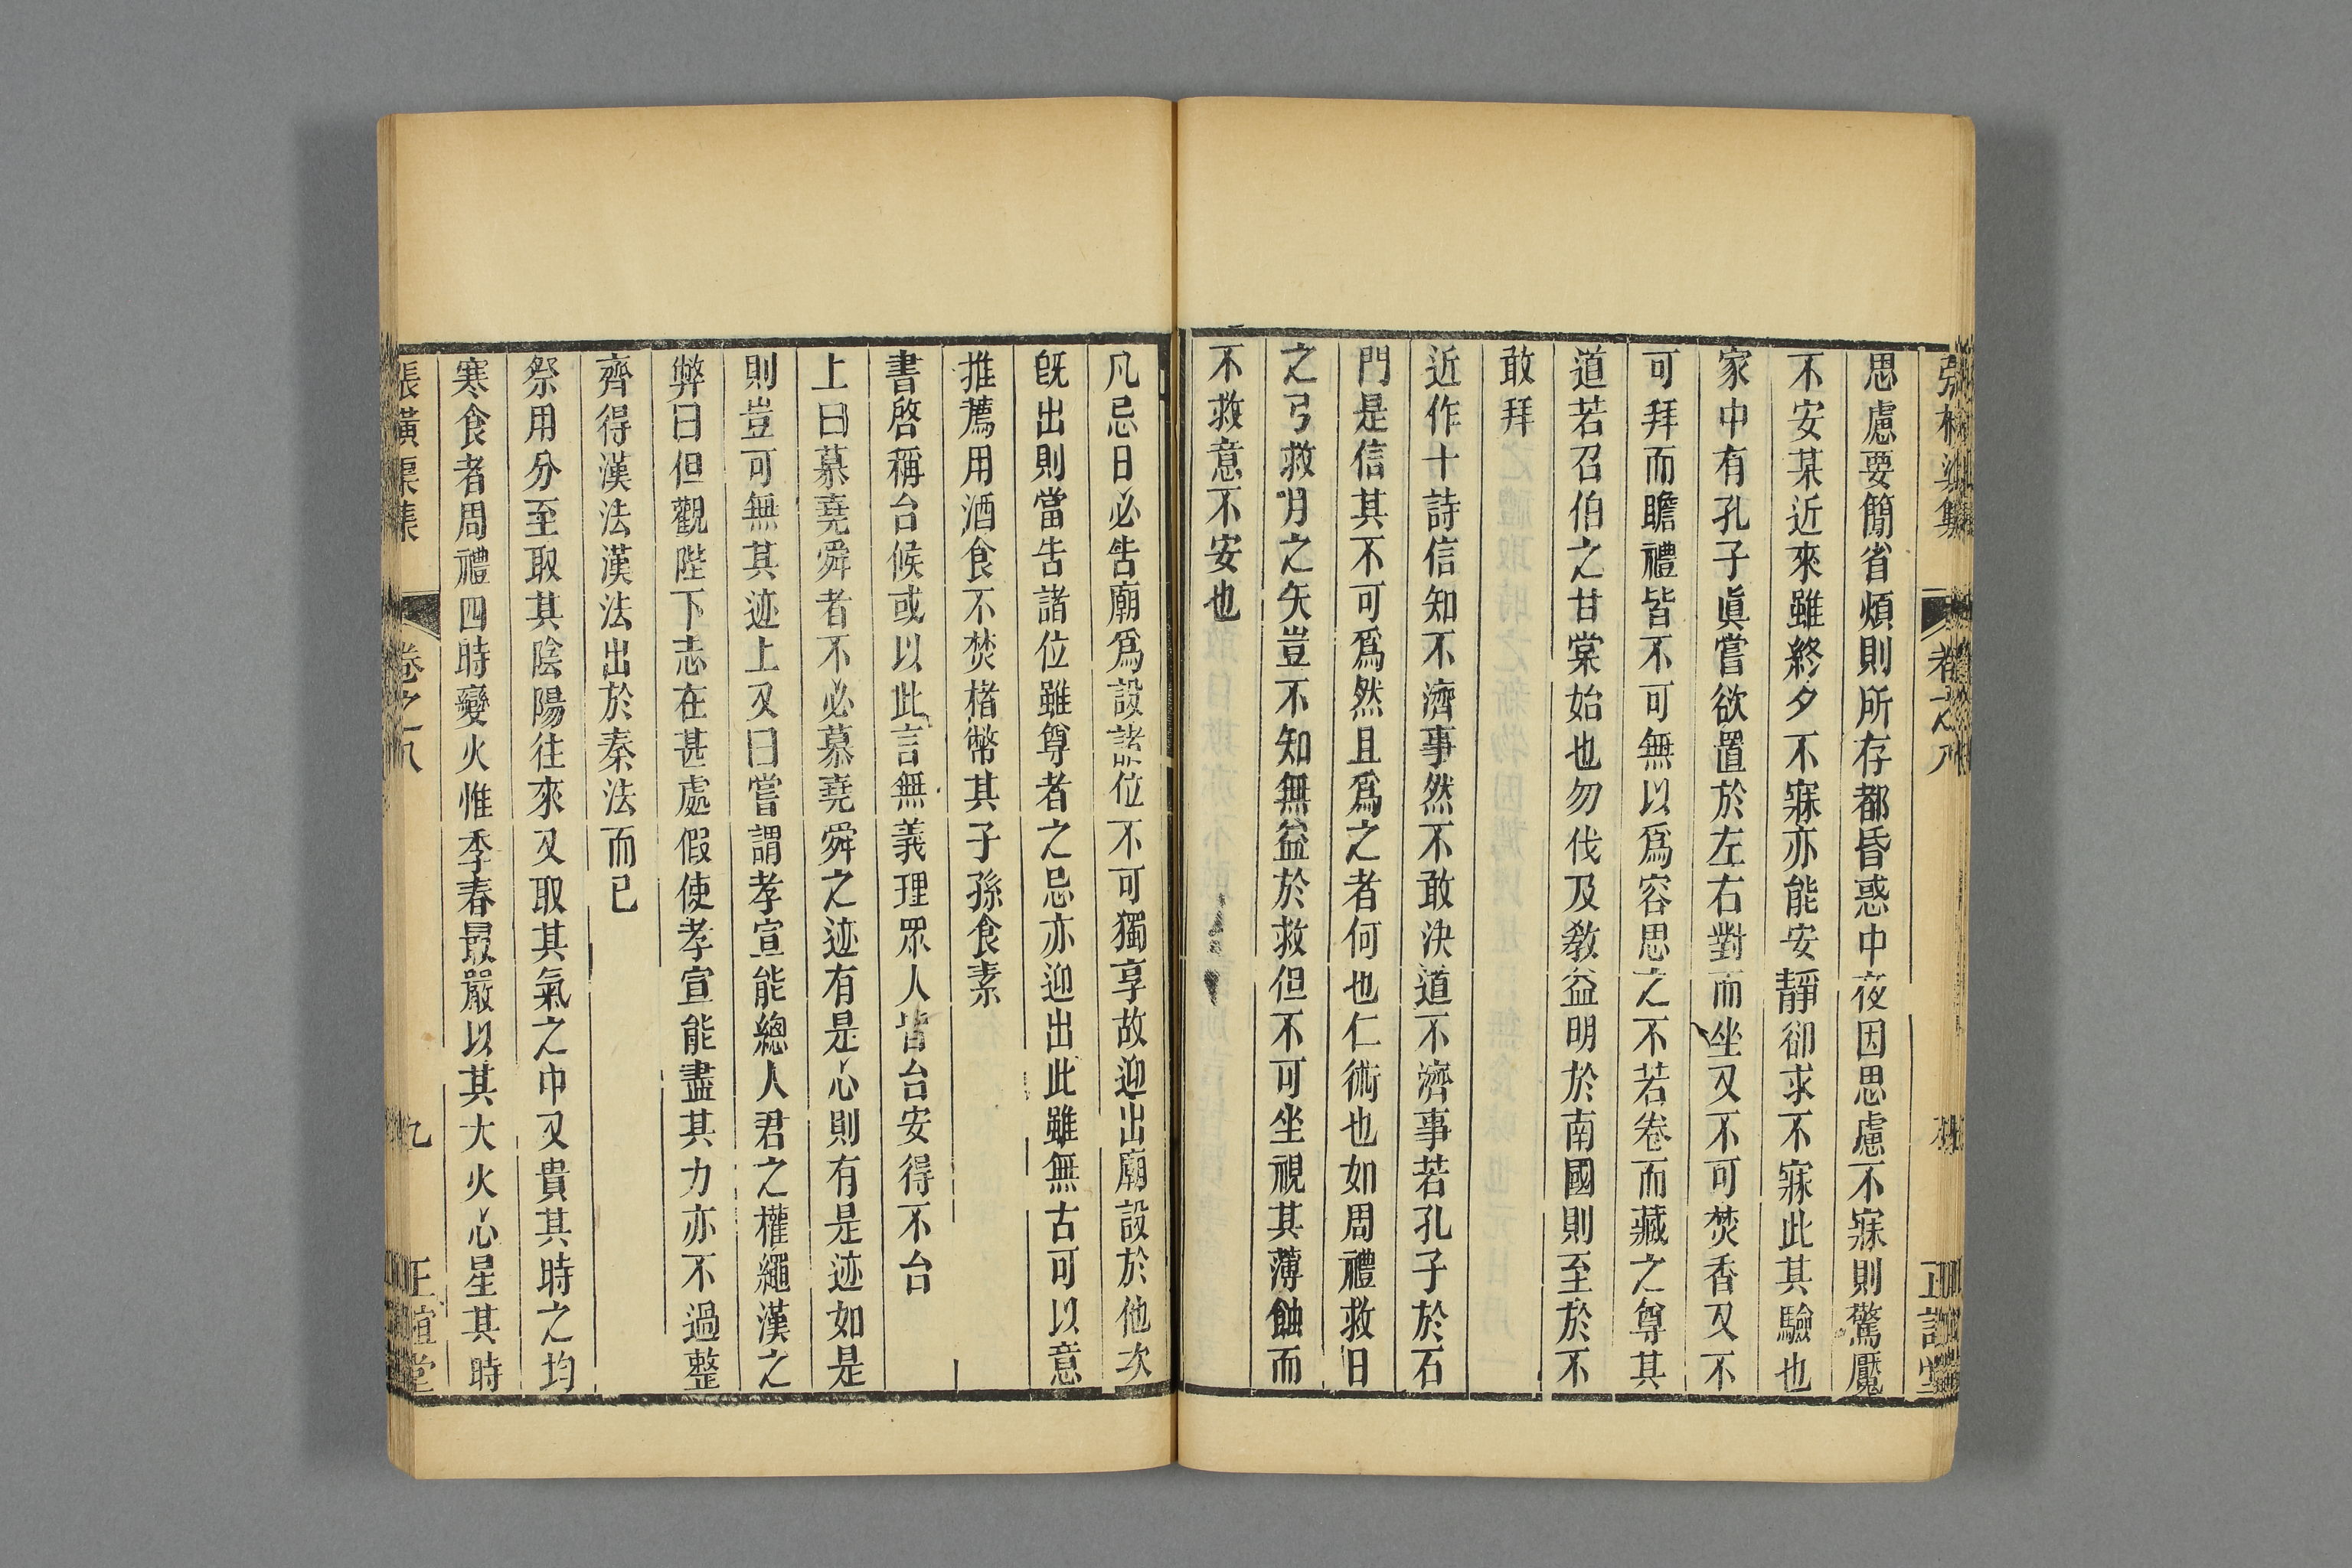 思慮要簡省煩則所存都昏惑中夜因思慮不寐則驚魘
不安某近來雖終夕不寐亦能安靜卻求不寐此其驗也
家中有孔子眞嘗欲置於左右對而坐又不可焚香又不
可拜而瞻禮皆不可無以爲容思之不若卷而藏之尊其
道若召伯之甘棠始也勿伐及敎益明於南國則至於不
敢拜
近作十詩信知不濟事然不敢決道不濟事若孔子於石
門是信其不可爲然且爲之者何也仁術也如周禮救日
之弓救月之矢豈不知無益於救但不可坐視其薄蝕而
不救意不安也
凡忌日必告廟爲設諸位不可獨享故迎出廟設於他次
旣出則當告諸位雖尊者之忌亦迎出此雖無古可以意
推薦用酒食不焚楮幣其子孫食素
書啓稱台候或以此言無義理眾人皆台安得不台
上曰慕堯舜者不必慕堯舜之迹有是心則有是迹如是
則豈可無其迹上又曰嘗謂孝宣能總人君之權繩漢之
弊曰但觀陛下志在甚處假使孝宣能盡其力亦不過整
齊得漢法漢法出於秦法而已
祭用分至取其陰陽往來又取其氣之中又貴其時之均
寒食者周禮四時變火惟季春最嚴以其大火心星其時
張橫渠集
卷之八
九
正誼堂